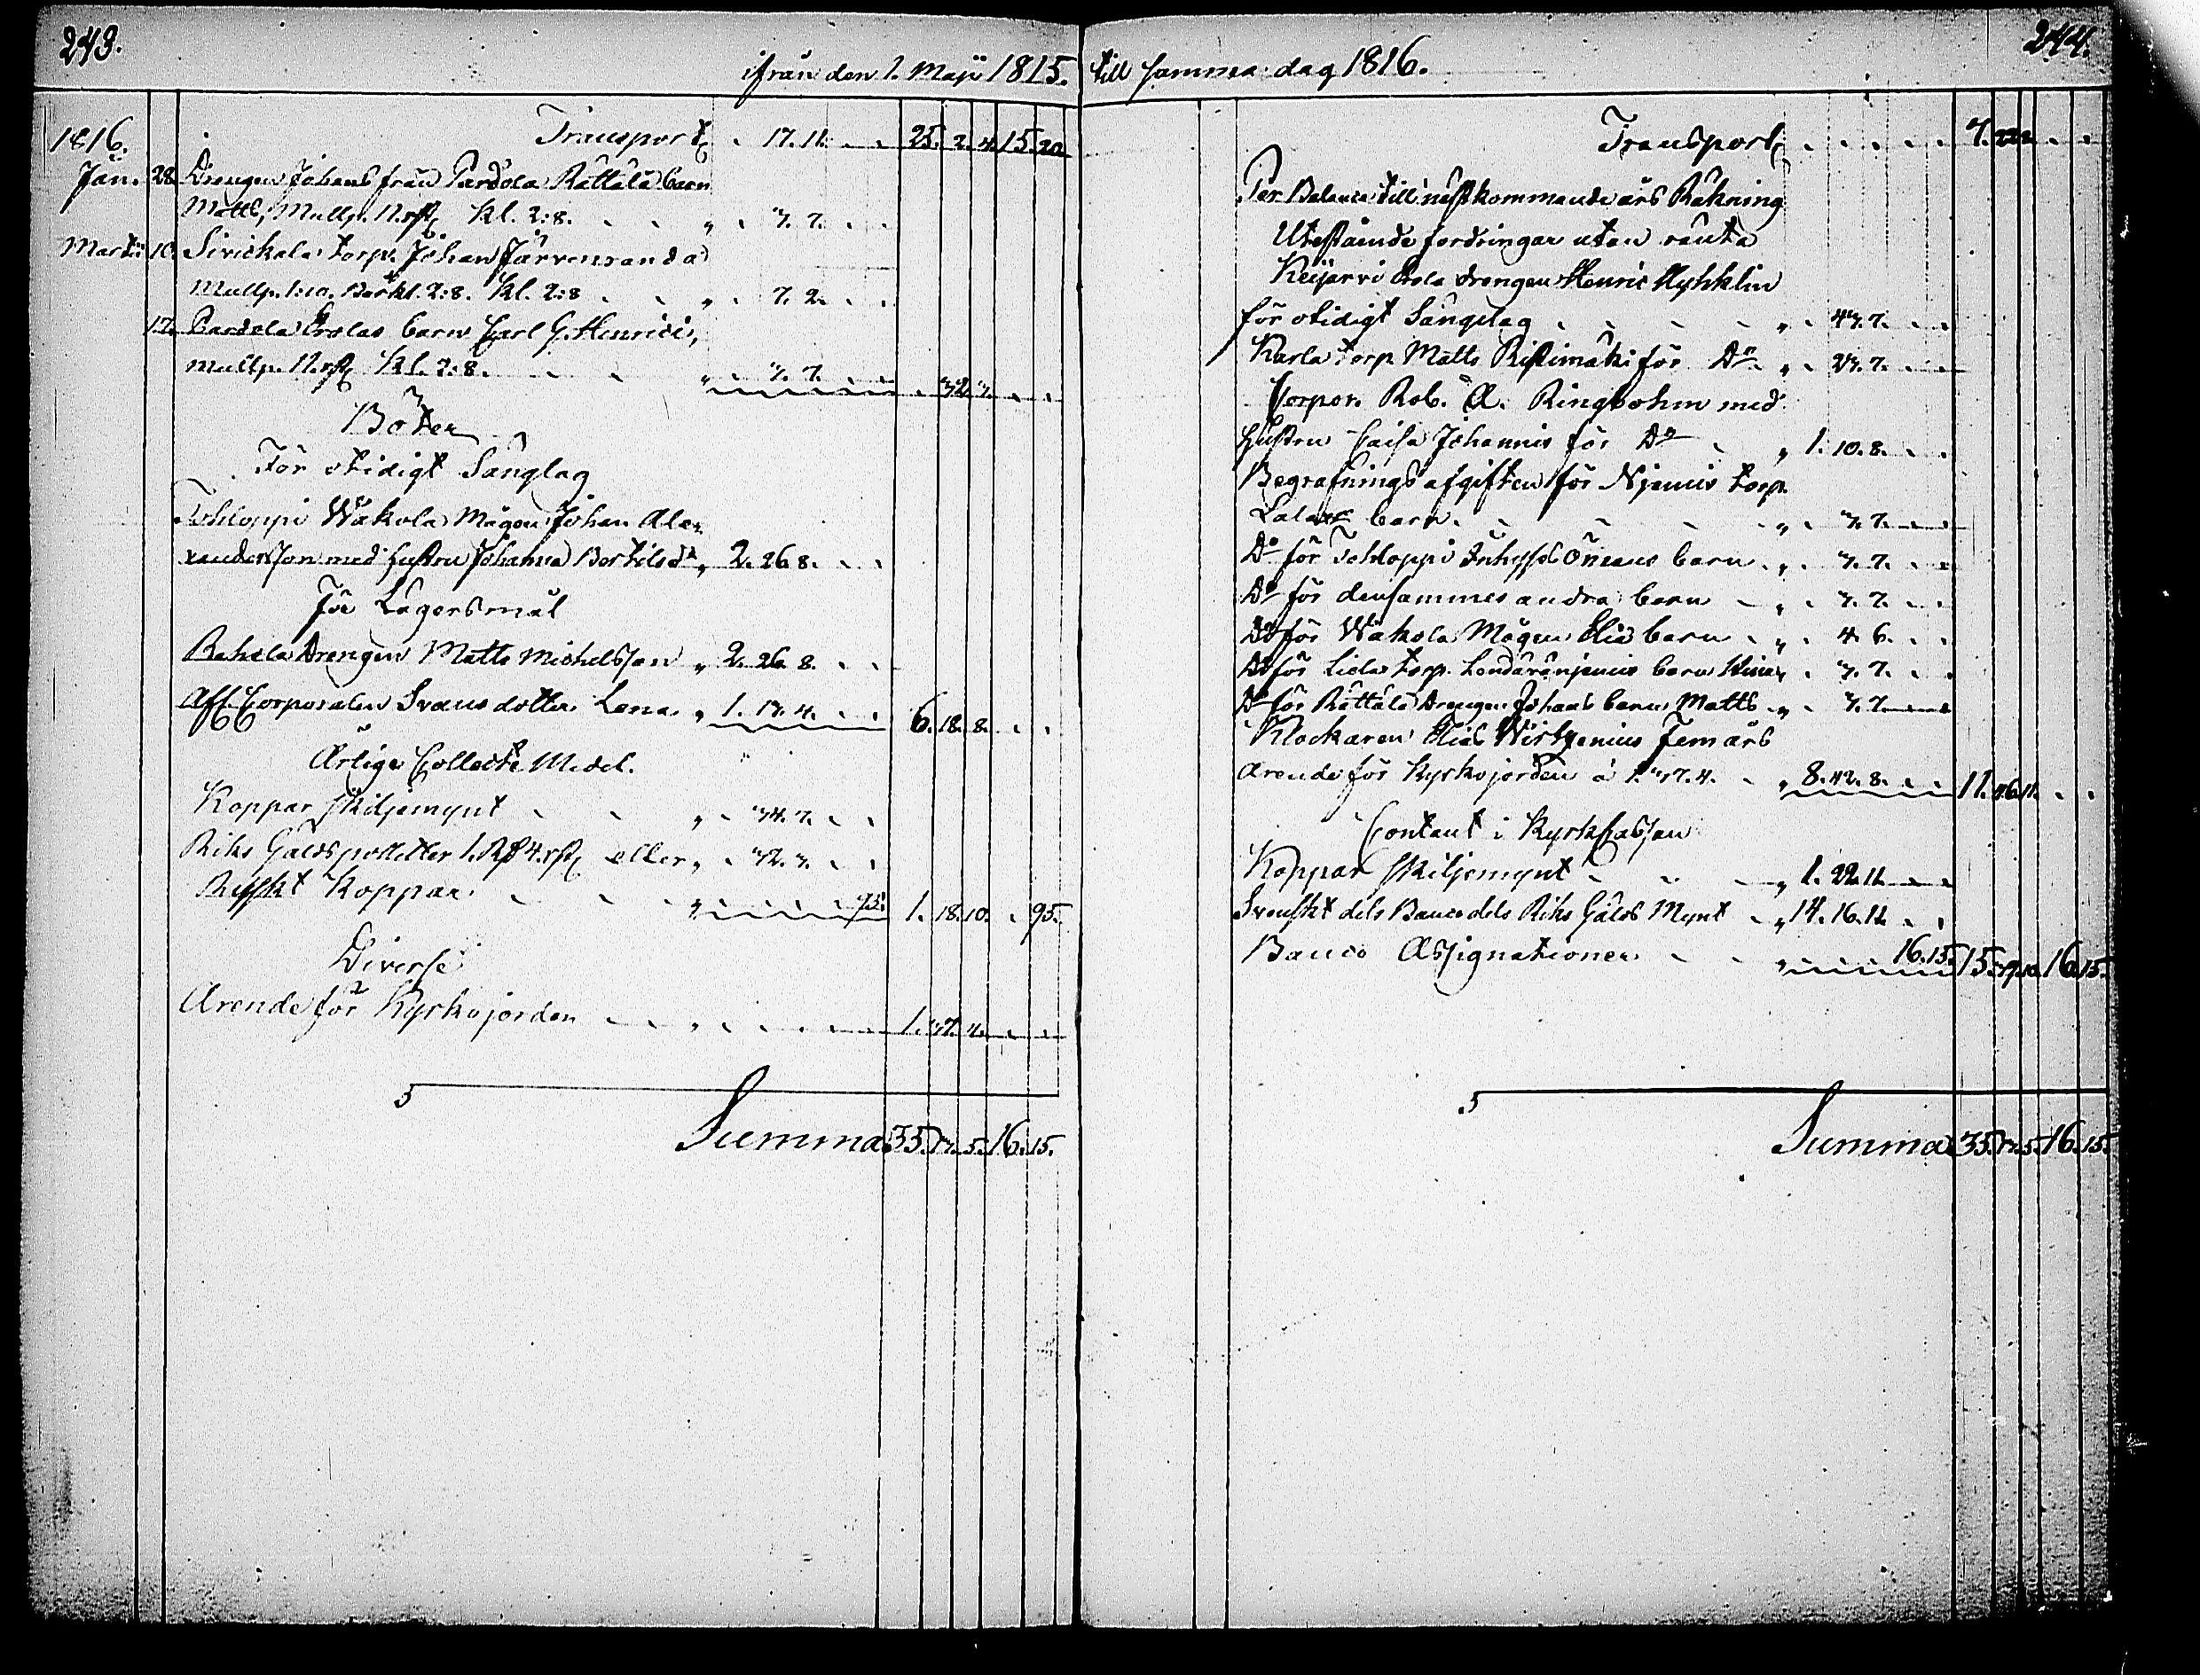 243.
ifrån den 1. Maji 1815.
1816. Transport 17. 11. 25. 2. 4. 15. 20
Jan. 28 Drengen Johans från Pardola Rättälä barn
Matts, Mullp. 11. rst. Kl. 2:8. 7. 7.
Martii 10. Sirickala torp. Johan Järvenranda
Mullp. 1:10. Bårkl. 2:8. Kl. 2:8 7. 2.
17. Pardola Erolas barn Carl G. Henrici,
Mullp. 11. rst. Kl. 2:8. 7. 7.
Böter
För otidigt Sänglag
Tohloppi Wakola Mågen Johan Alex
andersson med hustru Johanna Bertilsdr 2. 26 8.
För Lägersmål
Rahola Drengen Matts Michelsson 2. 26. 8.
Aff. Corporalen Svans dotter Lena 1. 17. 4. 6. 18. 8.
Årlige Collecte Medel.
Koppar skiljemynt 34. 7.
Riks Gälds polletter 1. Rd 4. rst. eller 32. 3.
Ryskt Koppar 95. 1. 18. 10. 95.
Diverse
Arende för Kyrkojorden 1. 37. 4.
Summa 35. 17. 5. 16. 15.
244.
till samma dag 1816.
Transport 7.
Per Balance till nästkommande års Räkning
Utestående fordringar utan ränta
Keijärvi Erola drengen Henric Hyhklin
för otidigt Sänglag 43. 7.
Karla torp. Matts Ristimäki för Do 23. 7.
Corpor. Rob. A. Ringbohm med
hustru Caisa Johannis för Do 1. 10. 8.
Begrafnings afgiften för Njemis torp.
barn 7. 7.
Do för Tohloppi Inhyses barn 7. 7.
Do för densammes andra barn 7. 7.
Do för Wakola Mågen Elis barn 4. 6.
Do för Liola torp. barn 7. 7.
Do för Rättälä Drengen Johans barn Matts 7. 7.
Klockaren Elias Wirtzenius Fem års
Arende för Kyrkojorden à 1. 37. 4. 8. 42. 8. 11. 46. 11.
Contant i Kyrkcassan
Koppar skiljemynt 1. 22. 11.
Svenskt dels Banco dels Riks Gälds Mynt 14. 16. 11.
Banco Assignationer 16. 15. 15. 39. 10. 16. 15.
Summa 35. 17. 5. 16. 15.